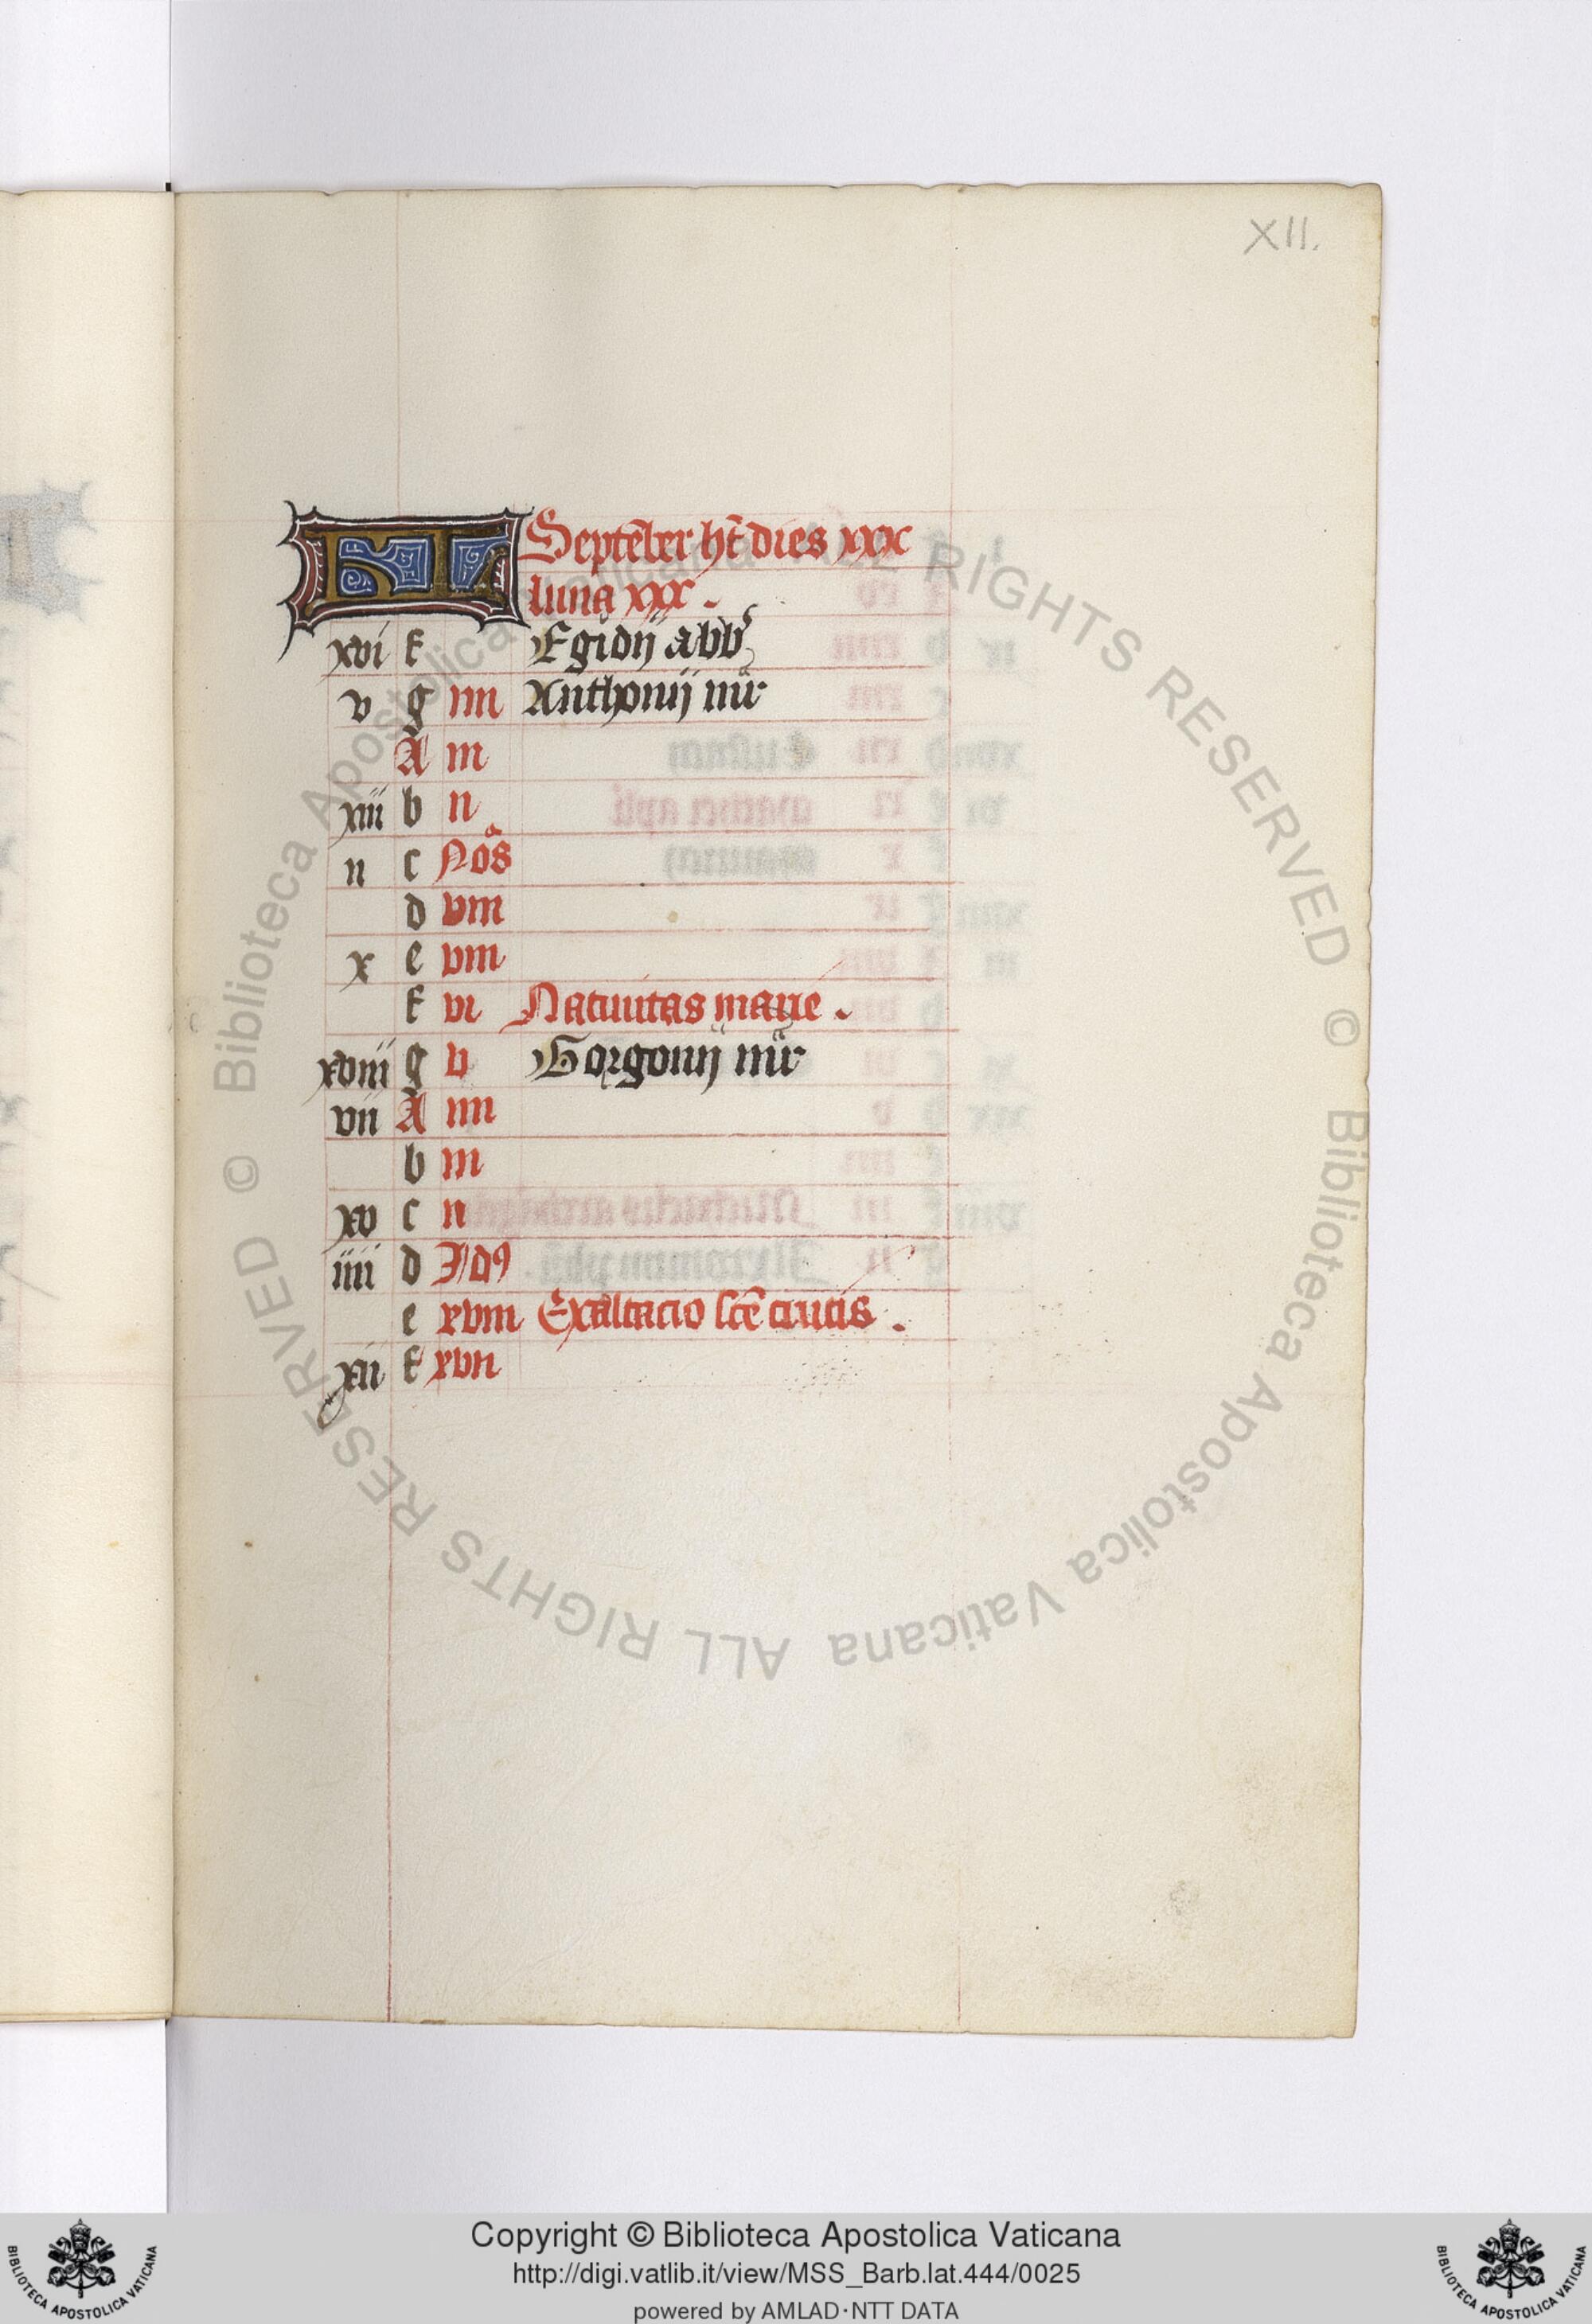 XII.
KL Septēber h̄t dies xxx
luna xxx.
xvi f Egidij abb
v g iiii Anthonij mr
A iii
xiii b ii
ii c Nōs
d viii
x e vii
f vi Natiuitas marie.
xviii g v Gorgonij mr
vii A iiii
b iii
xv c ii
iiii d Idꝰ
e xviii Exaltacio scē crucis.
xii f xvii
© Biblioteca Apostolica Vaticana ALL RIGHTS RESERVED © Biblioteca Apostolica Vaticana ALL RIGHTS RESERVED
Copyright © Biblioteca Apostolica Vaticana
http://digi.vatlib.it/view/MSS_Barb.lat.444/0025
powered by AMLAD·NTT DATA
BIBLIOTECA APOSTOLICA VATICANA
BIBLIOTECA APOSTOLICA VATICANA